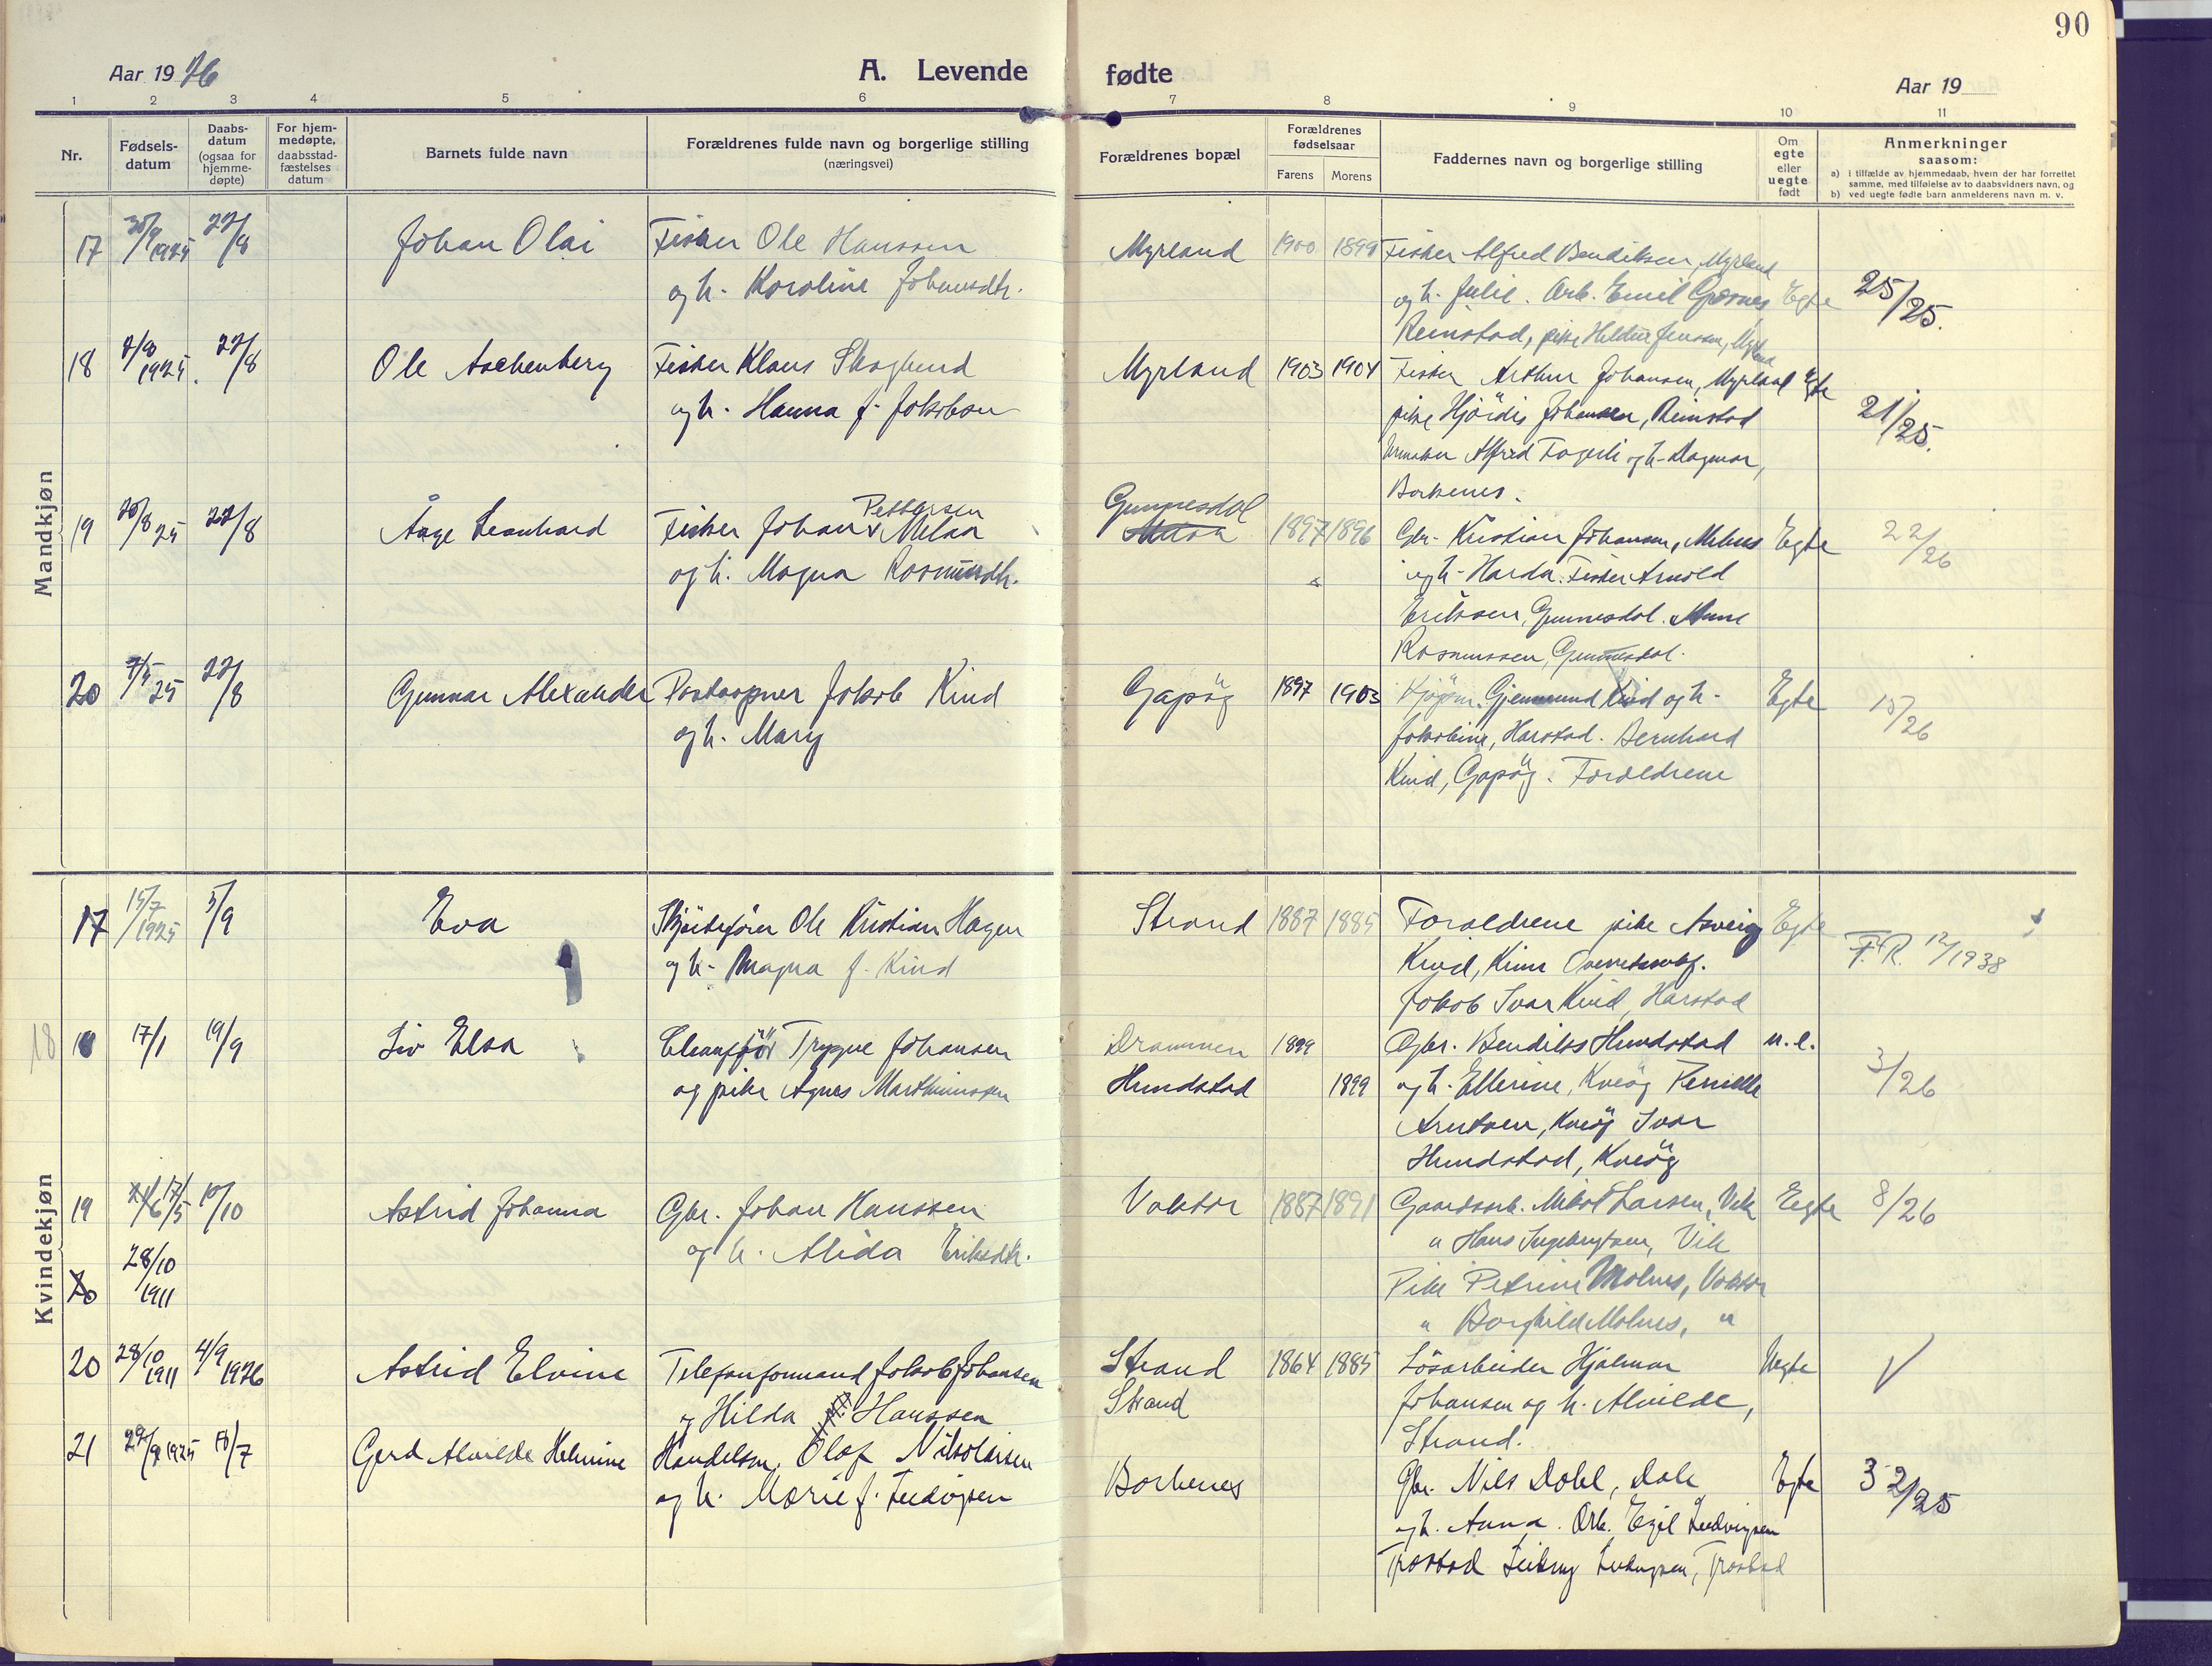 90
Aar 19 26
A. Levende fødte
Aar 19
1 2 3 4 5 6 7 8 9 10 11
Nr.
Fødsels-
datum
Daabs-
datum
(ogsaa for
hjemme-
døpte)
For hjem-
medøpte,
daabsstad-
fæstelses
datum
Barnets fulde navn
Forældrenes fulde navn og borgerlige stilling
(næringsvei)
Forældrenes bopæl
Forældrenes
fødselsaar
Farens Morens
Faddernes navn og borgerlige stilling
Om
egte
eller
uegte
født
Anmerkninger
saasom:
a) i tilfælde av hjemmedaab, hvem der har forrettet
samme, med tilføielse av to daabsvidners navn, og
b) ved uegte fødte barn anmelderens navn m. v.
Mandkjøn
17 1925 22/8 Johan Olai Fisker Ole Hanssen Myrland 1900 1899 Fisker Alfred Bendiksen, Myrland
og h. Karoline Johansdtr. og h. Julie. Arb. Emil Egte 25/25.
Reinstad, pike Jensen, Myrland
18 1925. 22/8 Ole Aschenberg Fisker Klaus Skoglund Myrland 1903 1904 Fisker Arthur Johansen, Myrland Egte
og h. Hanna f. Jakobsen pike Hjördis Johansen, Reinstad 21/25.
Alfred Fagerli og h. Dagmar,
Borkenes.
19 25 22/8 Åage Leonhard Fisker Johan Pettersen Gunnesdal 1897 1896 Gbr. Kristian Johansen, Melnes Egte 22/26
og h. Magna Rasmusdtr. og h. Harda. Fisker Arnold
Eriksen, Gunnesdal. Anne
Rasmussen, Gunnesdal.
20 25 22/8 Gunnar Alexander Postaapner Jakob Kind Gapöy 1897 1903 Kjöpm. Kind og h. Egte 15/26
og h. Mary Jakobine, Harstad. Bernhard
Kind, Gapöy. Forældrene
Kvindekjøn
17 15/7 1925 5/9 Eva Ole Kristian Hagen Strand 1887 1885 Forældrene pike Kind, Egte F.R. 12/1938
og h. Magna f. Kind
Jakob Ivar Kind, Harstad
18 17/1 19/9 Liv Elsa Trygve Johansen Drammen 1899 Gbr. Bendiks Hundstad u.e. 3/26
og pike Agnes Marthinussen Hundstad 1899 og h. Ellerine, Kveöy Pernille
Arntsen, Kveöy Ivar
Hundstad, Kveöy
19 17/5 10/10 Astrid Johanna Gbr. Johan Hanssen Voktor 1887 1891 Gaardsarb. Larsen, Vik Egte 8/26
og h. Alida Eriksdtr. " Hans Ingebrigtsen, Vik
28/10
1911
Pike Petrine Molnes, Voktor
" Borghild Molnes, "
20 28/10 1911 4/9 1926 Astrid Elvine Telefonformand Jakob Johansen Strand 1864 1885 Lösarbeider Hjalmar Uegte √
og Hilda Hanssen Strand Johansen og h. Alvilde,
Strand.
21 1925 18/7 Gerd Alvilde Helmine Handelsm. Olaf Nikolaisen Borkenes Gbr. Nils Dahl, Dale Egte 32/25
og h. Marie f. Ludvigsen og h. Anna. Arb. Egil Ludvigsen
Trastad Ludvigsen, Trastad